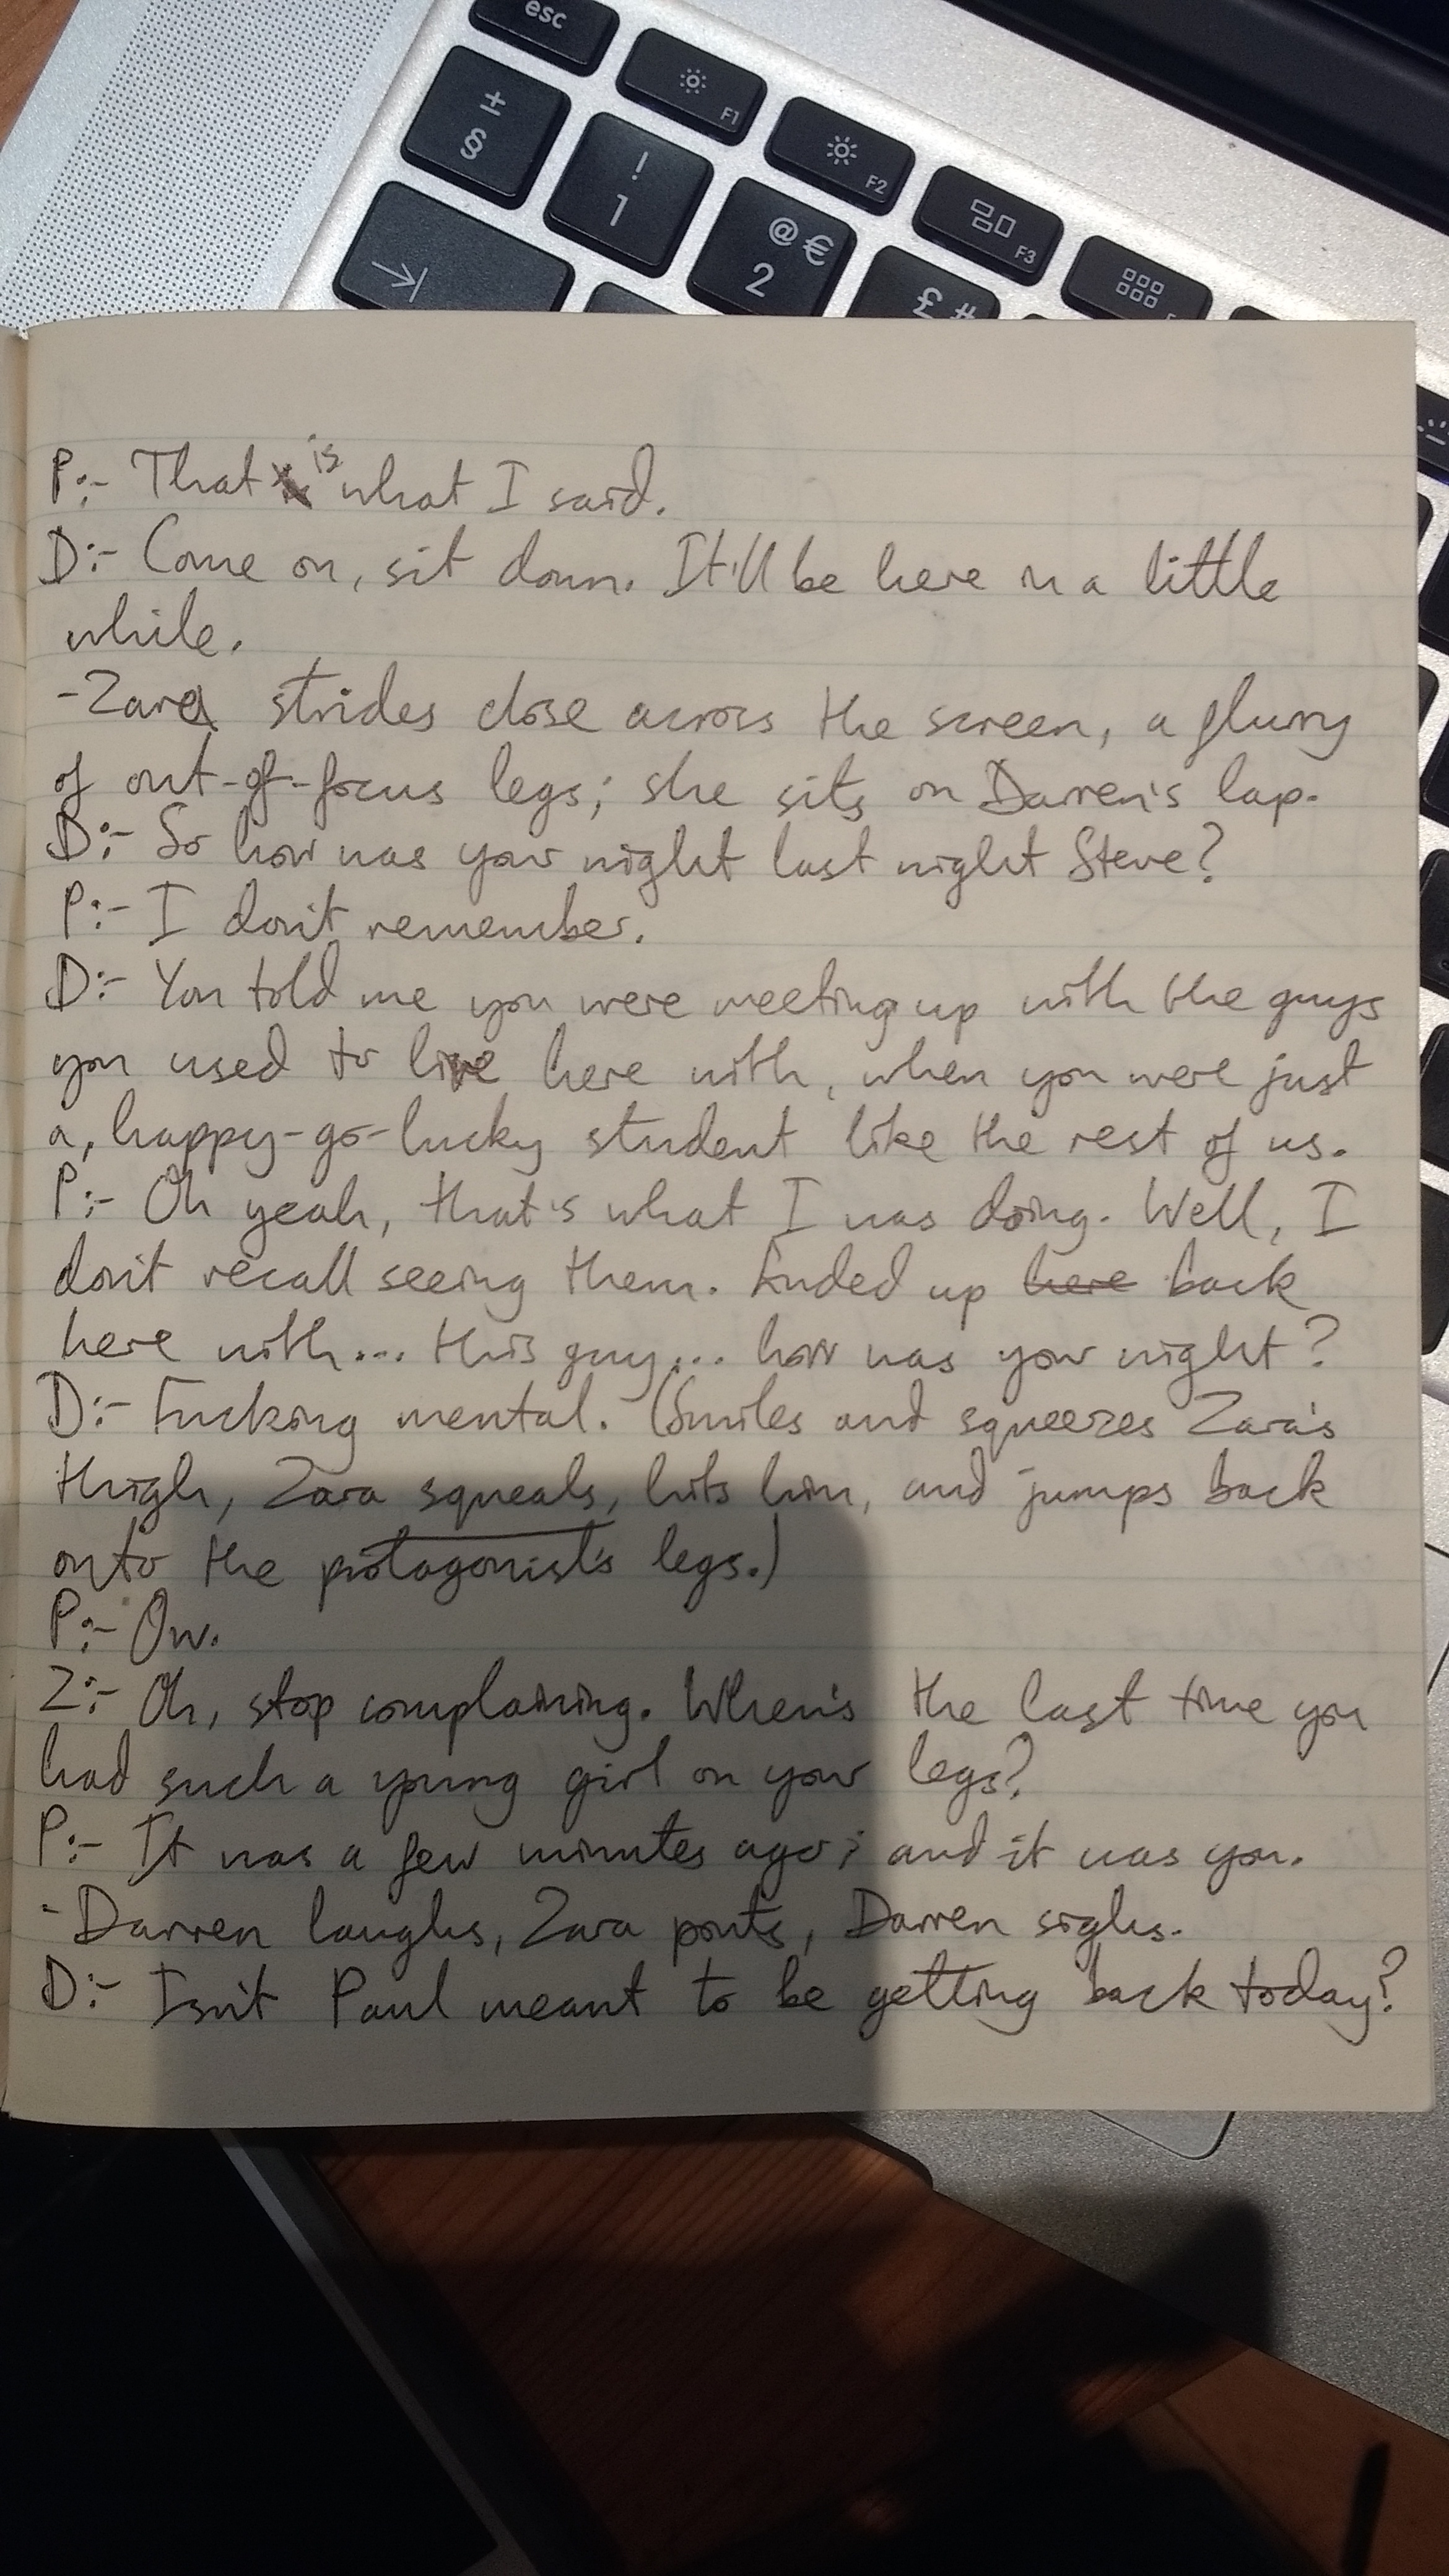 esc
F1
F2
F3
±
§
!
1
@ €
2
£ #
P:- That is what I said.
D:- Come on, sit down. It'll be here in a little
while.
- Zara strides close across the screen, a flurry
of out-of-focus legs; she sits on Darren's lap.
D:- So how was your night last night Steve?
P:- I don't remember.
D:- You told me you were meeting up with the guys
you used to live here with, when you were just
a, happy-go-lucky student like the rest of us.
P:- Oh yeah, that's what I was doing. Well, I
don't recall seeing them. Ended up here back
here with... this guy... how was your night?
D:- Fucking mental. (Smiles and squeezes Zara's
thigh, Zara squeals, hits him, and jumps back
onto the protagonist's legs.)
P:- Ow.
Z:- Oh, stop complaining. When's the last time you
had such a young girl on your legs?
P:- It was a few minutes ago; and it was you.
- Darren laughs, Zara pouts, Darren sighs.
D:- Isn't Paul meant to be getting back today?